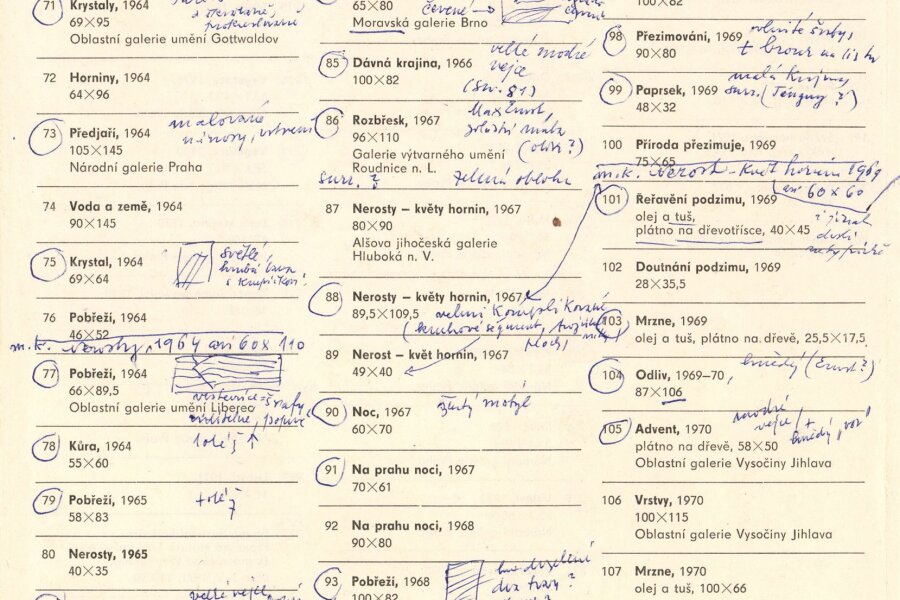 71 Krystaly, 1964
69×95
Oblastní galerie umění Gottwaldov
72 Horniny, 1964
64×96
73 Předjaří, 1964
malované
105×145
Národní galerie Praha
74 Voda a země, 1964
90×145
75 Krystal, 1964
světlé,
69×64
76 Pobřeží, 1964
46×52
m.k. Nerosty, 1964 asi 60x110
77 Pobřeží, 1964
66×89,5
Oblastní galerie umění Liberec
78 Kůra, 1964
totéž ↑
55×60
79 Pobřeží, 1965
totéž
58×83
80 Nerosty, 1965
40×35
65×80
červené
Moravská galerie Brno
85 Dávná krajina, 1966
velké modré
vejce
100×82
(sv. 81)
86 Rozbřesk, 1967
Max Ernst
96×110
Galerie výtvarného umění
Roudnice n. L.
surr. ?
zelená obloha
87 Nerosty – květy hornin, 1967
80×90
Alšova jihočeská galerie
Hluboká n. V.
88 Nerosty – květy hornin, 1967
89,5×109,5
velmi komplikované
89 Nerost – květ hornin, 1967
49×40
90 Noc, 1967
žlutý motýl
60×70
91 Na prahu noci, 1967
70×61
92 Na prahu noci, 1968
90×80
93 Pobřeží, 1968
100×82
100×82
98 Přezimování, 1969
90×80
99 Paprsek, 1969
malá
48×32
surr. (Tanguy?)
100 Příroda přezimuje, 1969
75×65
m.k. Nerost - květ hornin 1969
asi 60x60
101 Řeřavění podzimu, 1969
olej a tuš,
plátno na dřevotřísce, 40×45
102 Doutnání podzimu, 1969
28×35,5
103 Mrzne, 1969
olej a tuš, plátno na dřevě, 25,5×17,5
104 Odliv, 1969–70,
hnědý (Ernst?)
87×106
105 Advent, 1970
modré
vejce
plátno na dřevě, 58×50
Oblastní galerie Vysočiny Jihlava
106 Vrstvy, 1970
100×115
Oblastní galerie Vysočiny Jihlava
107 Mrzne, 1970
olej a tuš, 100×66